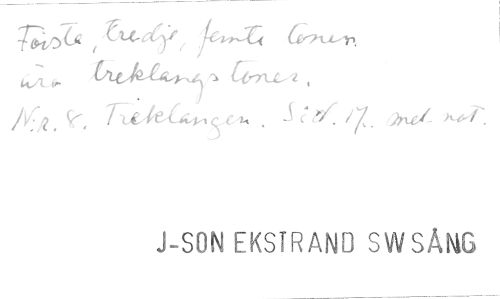 Första, tredje, femte tonen
äro treklangstoner.
N:r. 8. Treklangen. Sid. 17. med not.
J-SON EKSTRAND SW SÅNG